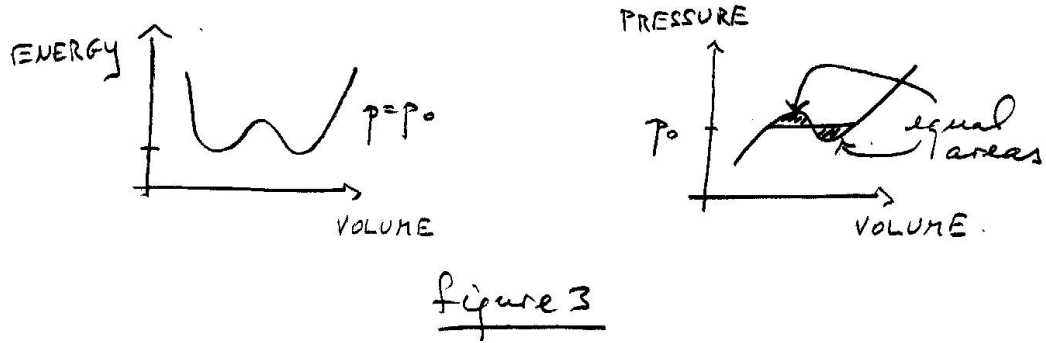 ENERGY
p=p₀
VOLUME
PRESSURE
p₀
equal
areas
VOLUME.
figure 3